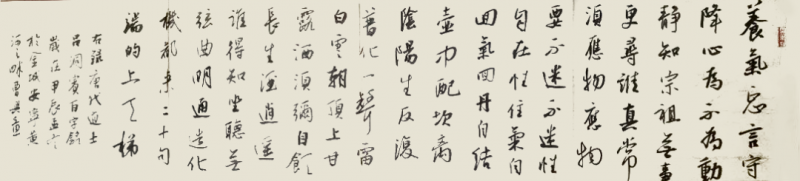 養氣忘言守
降心為不為動
靜知宗祖無事
更尋誰真常
須應物應物
要不迷不迷性
自在性住氣自
回氣回丹自結
壺中配坎離
陰陽生反復
普化一聲雷
白雲朝頂上甘
露洒須彌自飲
長生酒逍遙
誰得知坐聽無
弦曲明通造化
機都來二十句
端的上天梯
右錄唐代道士
呂洞賓百字銘
歲在甲辰
於金城安寧黃
河之畔曹